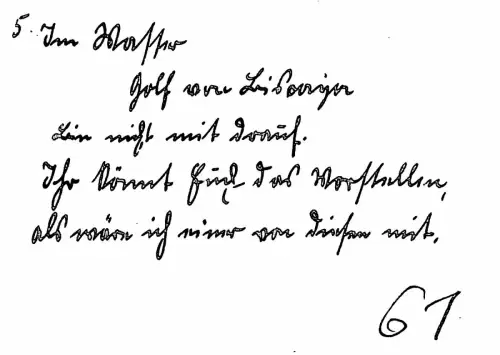 5. Im Wasser
Golf von Biscaya
Bin nicht mit drauf.
Ihr könnt Euch das Vorstellen,
als wäre ich einer von diesen mit.
61